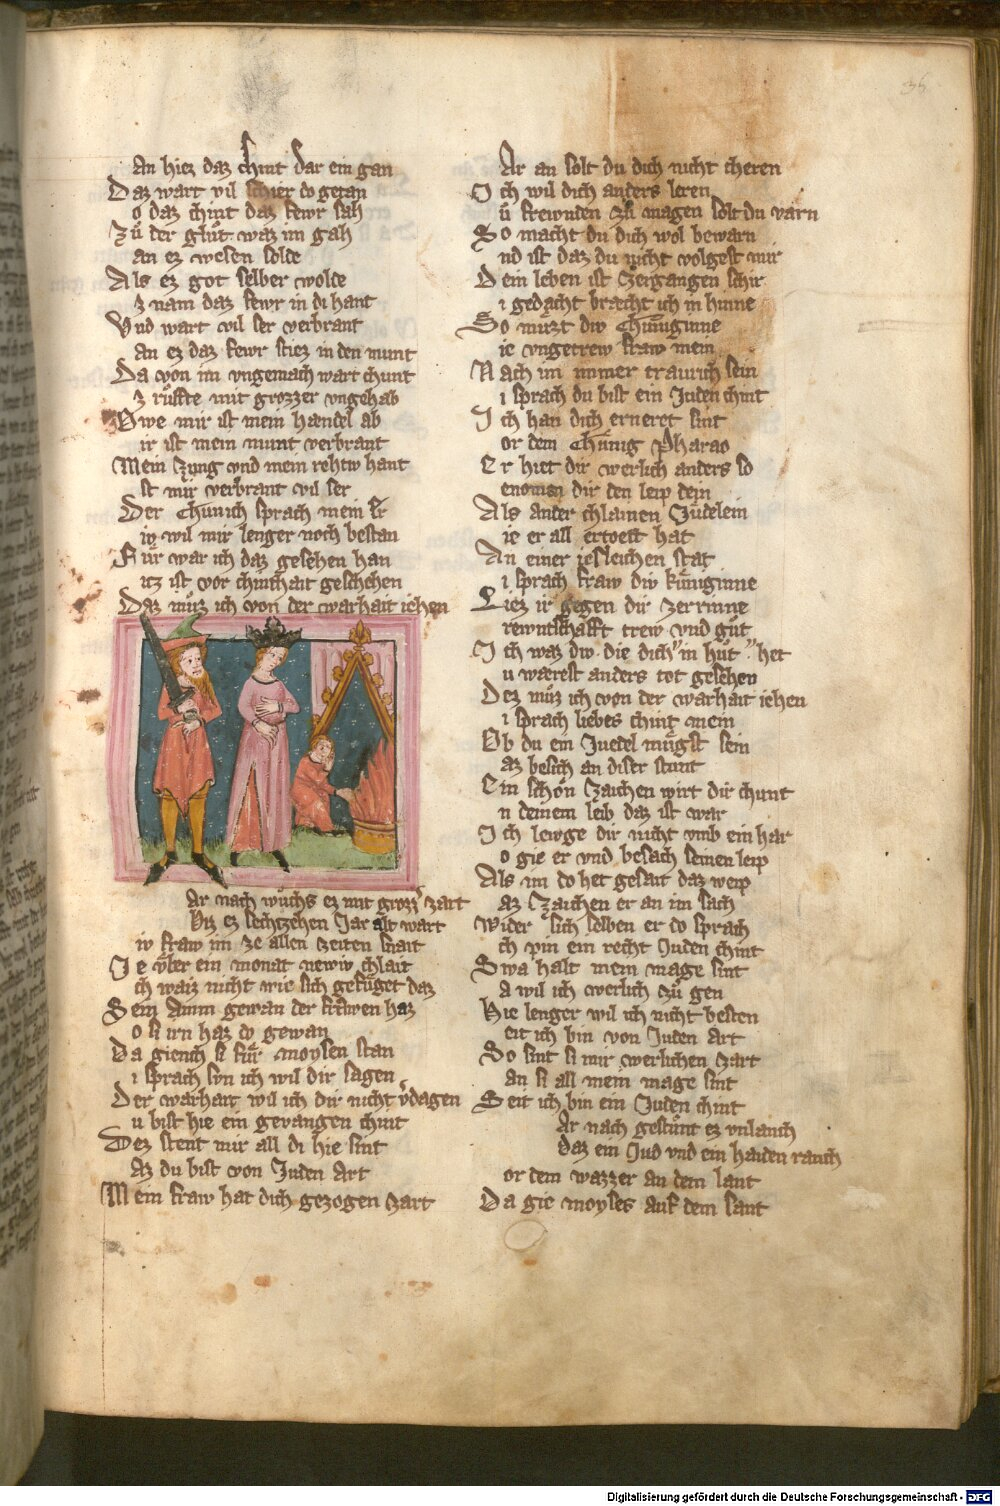 35
An hiez daz chint dar ein gan
Daz wart vil schier do getan
o daz chint daz fewr sah
Zů der glůt waz im gah
an ez wesen solde
Als ez got selber wolde
z nam daz fewr in di hant
Vnd wart vil ser verbrant
an ez daz fewr stiez in den munt
Da von im vngemach wart chunt
z růffte mit grozzer vngehab
Owe mir ist mein hændel ab
ir ist mein munt verbrant
Mein zung vnd mein rehtiv hant
st mir verbrant vil ser
Der Chunich sprach mein er
iv wil mir lenger noch bestan
Fůr war ich daz gesehen han
itz ist vor chinthait geschehen
Daz můz ich von der warhait iehen
Ar nach wůchs ez mit grozz zart
Biz ez sechtzehen Jar alt wart
iv fraw im ze allen zeiten snait
Je vber ein monat newiv chlait
ch waiz nicht wie sich gefůget daz
Sein Amm gewan der frawen haz
o si irn haz do gewan
Da giench si fůr moysen stan
i sprach syn ich wil dir sagen
Der warhait wil ich dir nicht vdagen
u bist hie ein gevangen chint
Dez stent mir all di hie sint
az du bist von Juden art
Mein fraw hat dich gezogen zart
Ar an solt du dich nicht cheren
Ich wil dich anders leren
ů frewnden zů magen solt du varn
So macht du dich wol bewarn
nd ist daz du nicht volgest mir
Dein leben ist Zergangen schir
i gedacht bræcht ich in hinne
So můzt div Chůniginne
ie vngetrew fraw mein
Nach im immer traurich sein
i sprach du bist ein Juden chint
Ich han dich erneret sint
or dem Chůnig Pharao
Er hiet dir werlich anders so
enomen dir den leip dein
Als ander chlainen Jůdelein
ie er all ertoett hat
An einer iesleichen stat
i sprach fraw div kůniginne
Liez ir gegen dir zerrinne
rewntschafft trew vnd gůt
Ich waz div die dich in hůt het
u wærest anders tot gesehen
Dez můz ich von der warhait iehen
i sprach liebes chint mein
Ob du ein Juedel můgst sein
az besich an diser stunt
Ein schon Zaichen wirt dir chunt
n deinem leib daz ist war
Ich lewge dir nicht vmb ein har
o gie er vnd besach seinen leip
Als im do het gesait daz weip
az Zaichen er an im sach
Wider sich selben er do sprach
ch pin ein recht Juden chint
Swa halt mein mage sint
a wil ich werlich zů gen
Hie lenger wil ich nicht besten
eit ich bin von Juden art
So sint si mir werlichen zart
an si all mein mage sint
Seit ich bin ein Juden chint
Ar nach gestůnt ez vnlanch
daz ein Jud vnd ein haiden ranch
or dem wazzer an dem lant
Da gie moyses auf dem sant
Digitalisierung gefördert durch die Deutsche Forschungsgemeinschaft - DFG